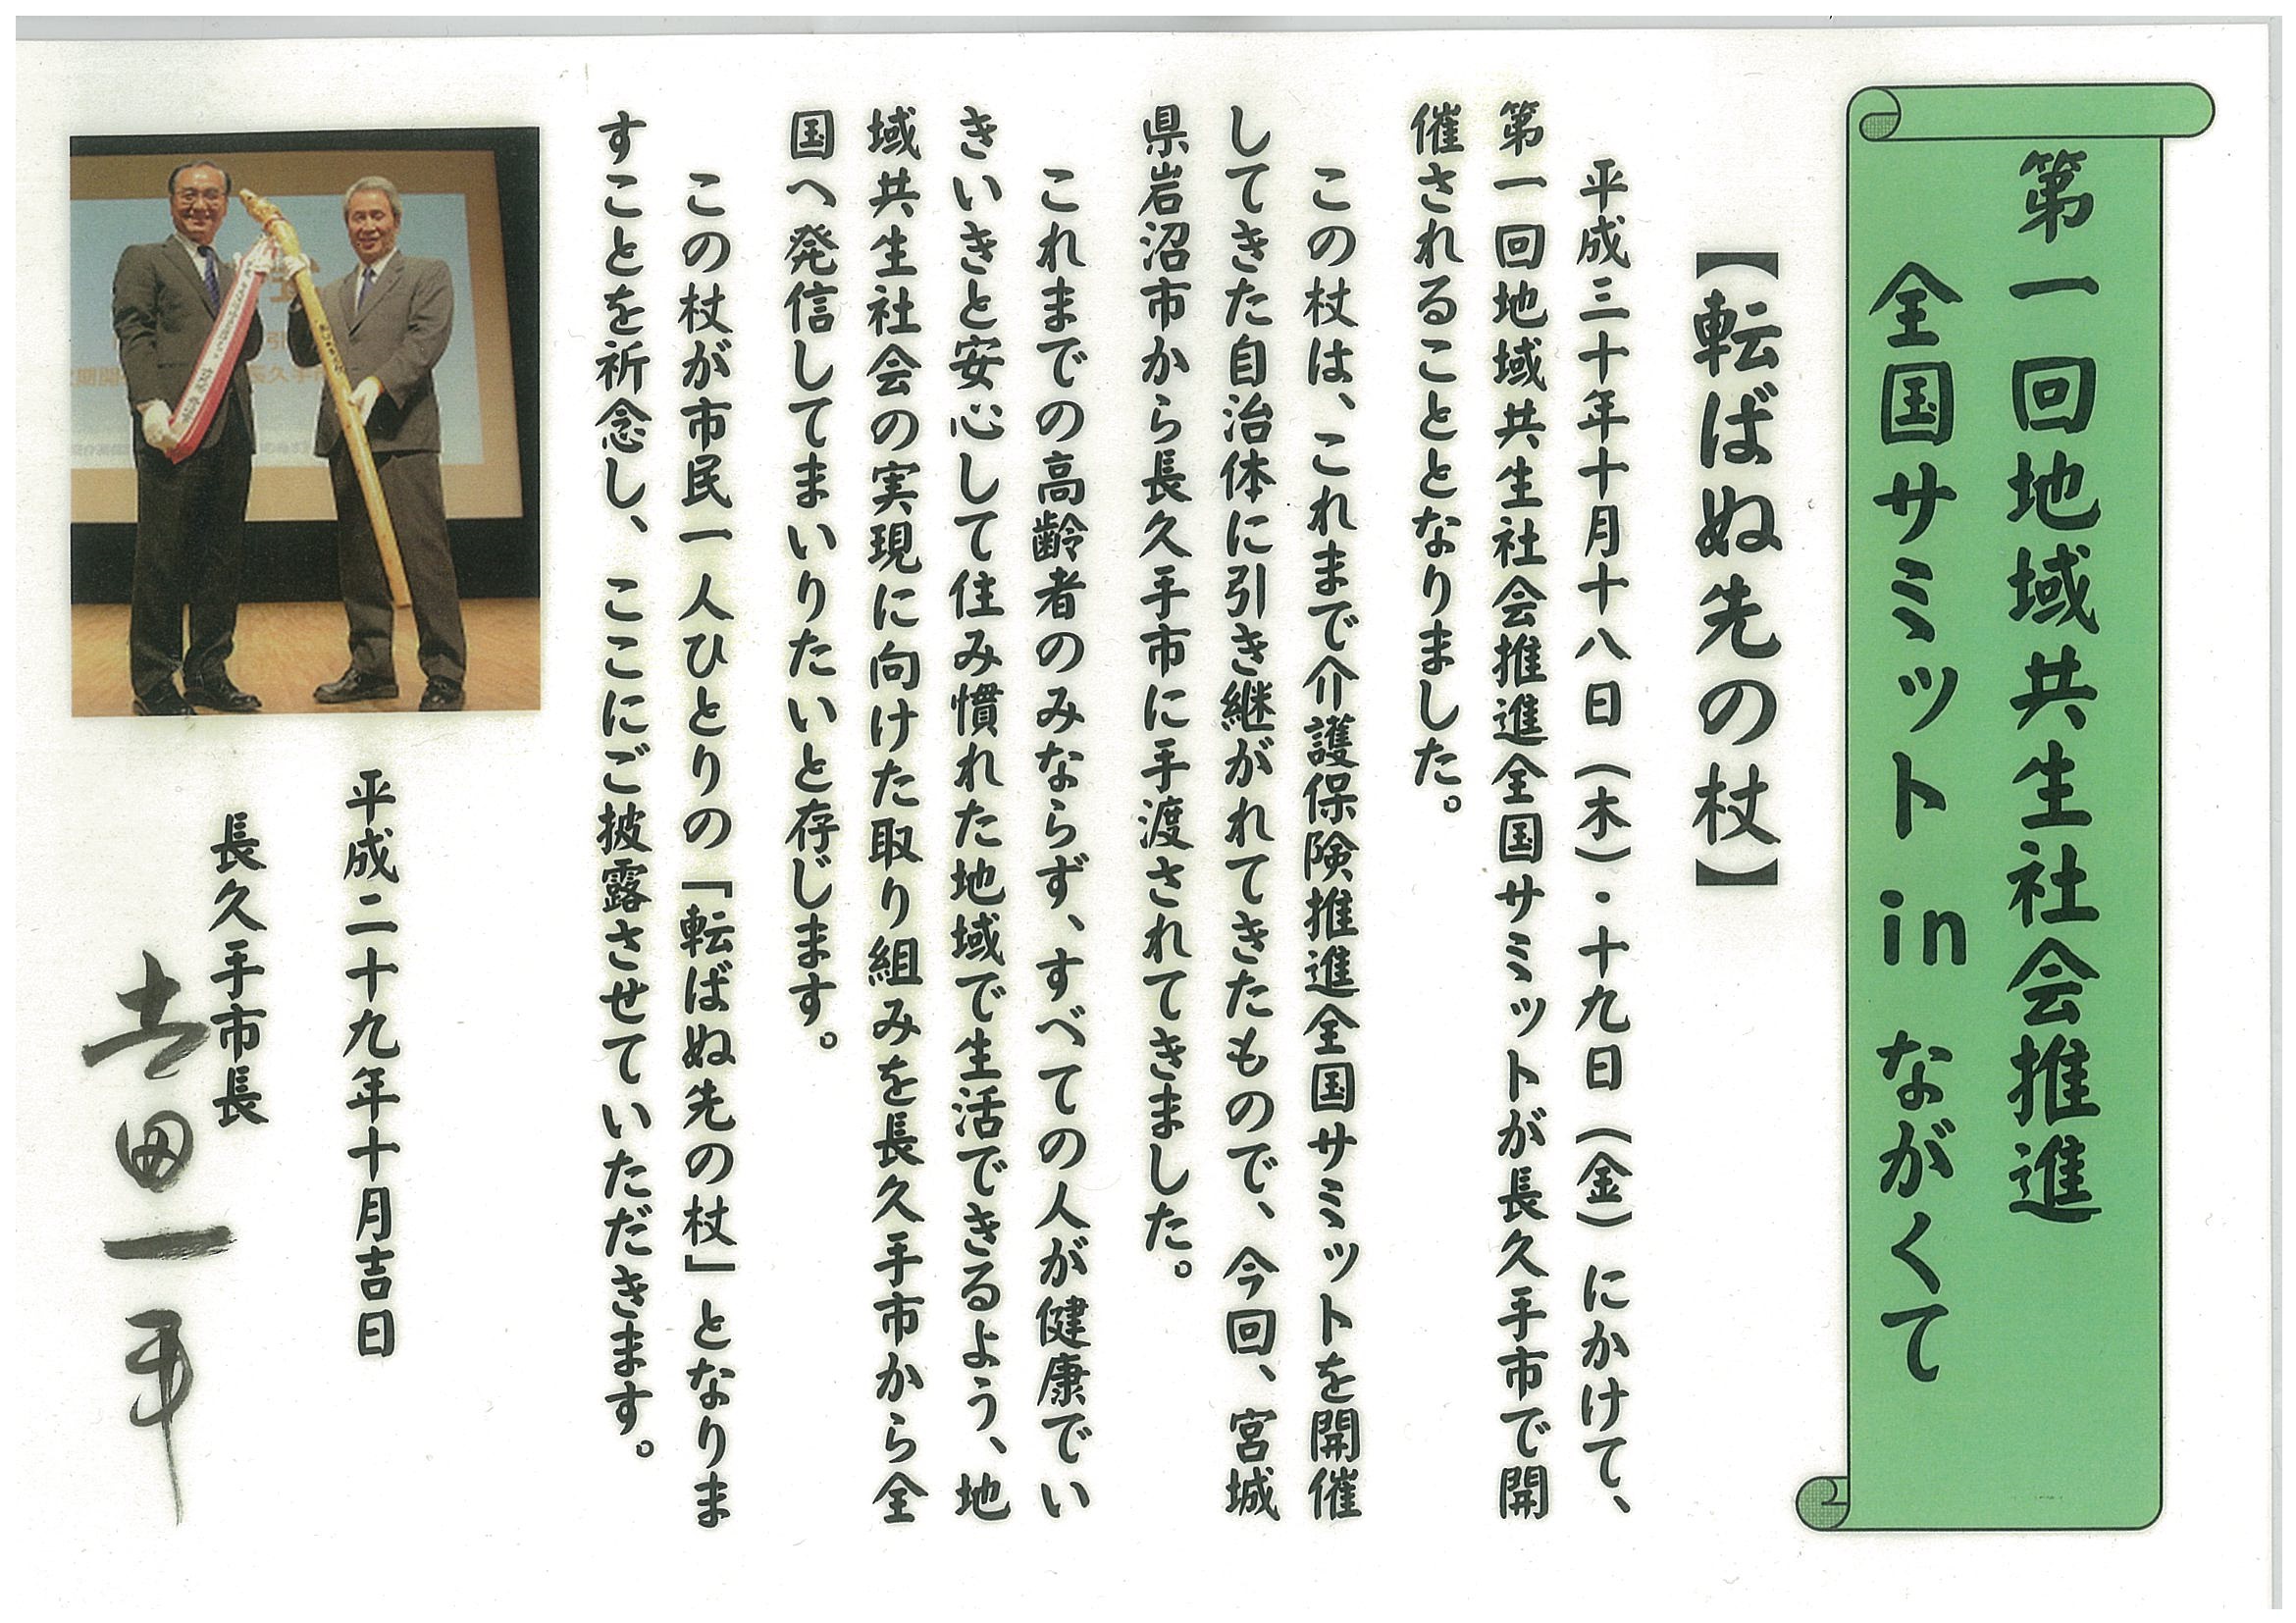 第一回地域共生社会推進
全国サミット in ながくて
【転ばぬ先の杖】
平成三十年十月十八日（木）・十九日（金）にかけて、
第一回地域共生社会推進全国サミットが長久手市で開
催されることとなりました。
この杖は、これまで介護保険推進全国サミットを開催
してきた自治体に引き継がれてきたもので、今回、宮城
県岩沼市から長久手市に手渡されてきました。
これまでの高齢者のみならず、すべての人が健康でい
きいきと安心して住み慣れた地域で生活できるよう、地
域共生社会の実現に向けた取り組みを長久手市から全
国へ発信してまいりたいと存じます。
この杖が市民一人ひとりの「転ばぬ先の杖」となりま
すことを祈念し、ここにご披露させていただきます。
平成二十九年十月吉日
長久手市長
吉田一平